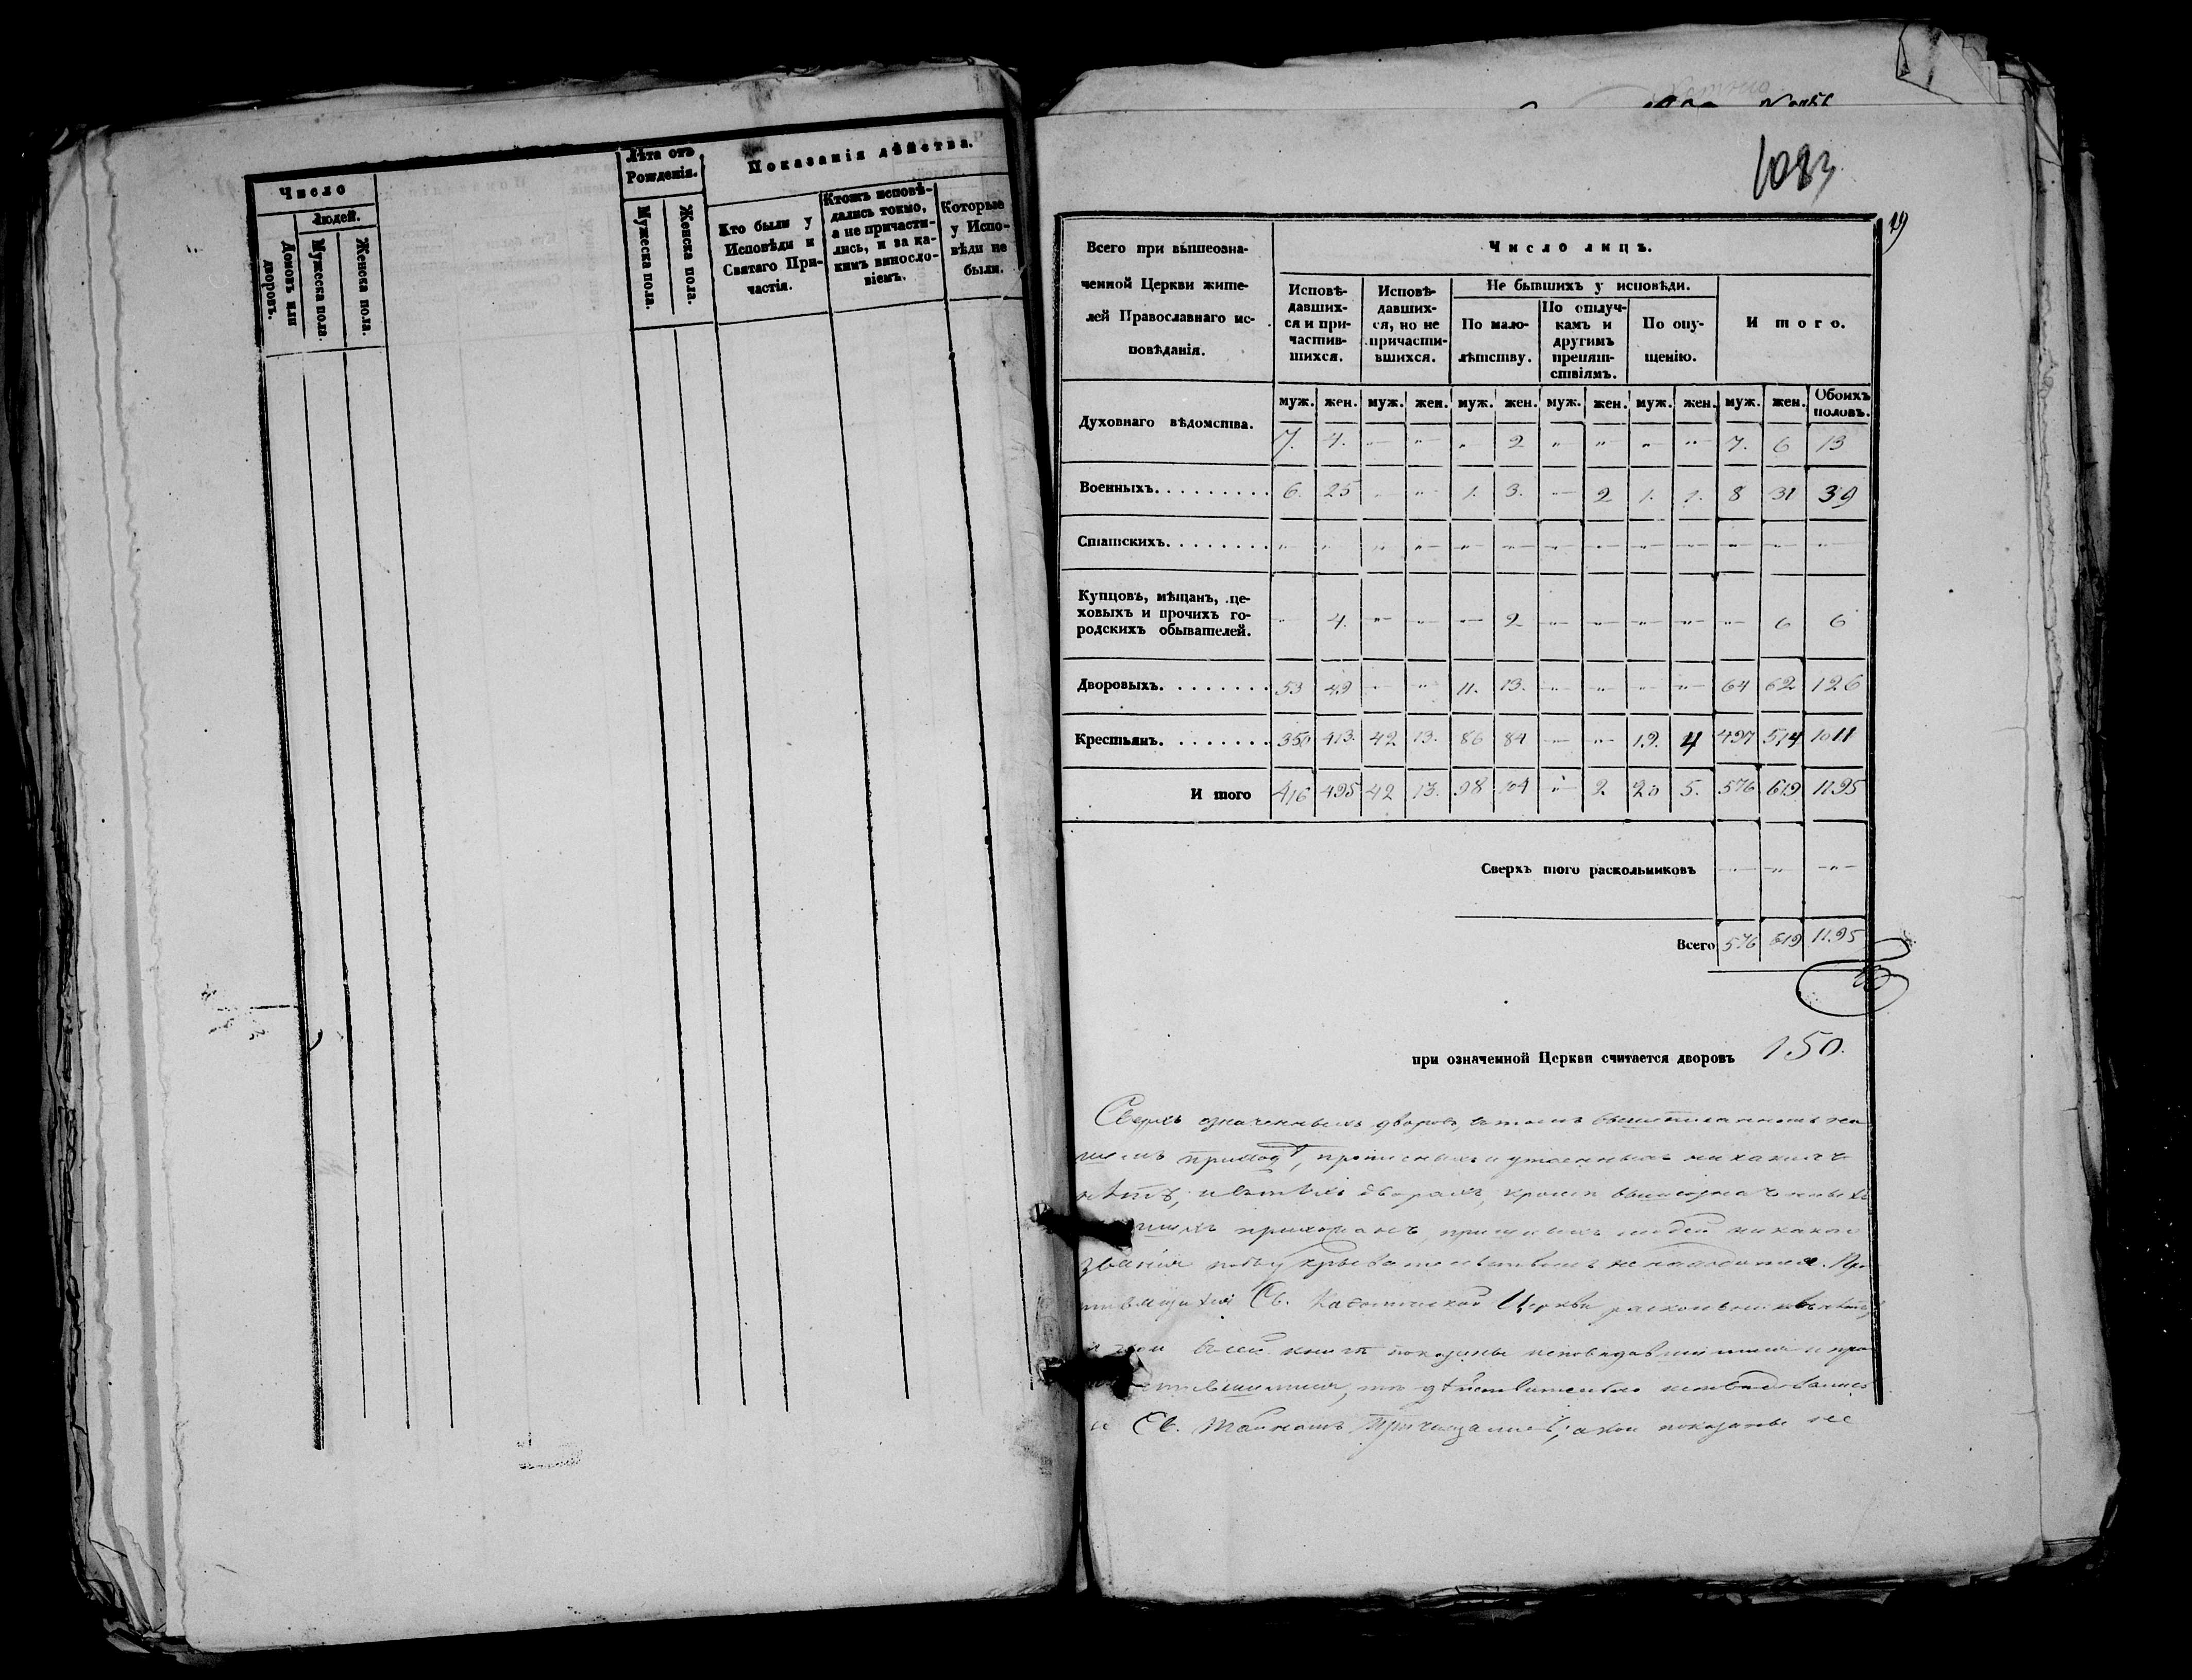 Число
Людей.
Домовъ или дворовъ.
Мужеска пола.
Женска пола.
Лѣта отъ Рожденія.
Мужеска пола.
Женска пола.
Показанія дѣйства.
Кто были у Исповѣди и Святаго Причастія.
Ктожъ исповѣдались токмо, а не причастились, и за какимъ винословіемъ.
Которые у Исповѣди не были.
1083
19
Всего при вышеозначенной Церкви жителей Православнаго исповѣданія.
Число лицъ.
Исповѣдавшихся и причастившихся.
Исповѣдавшихся, но не причастившихся.
Не бывшихъ у исповѣди.
По малолѣтству.
По отлучкамъ и другимъ препятствіямъ.
По опущенію.
Итого.
муж. жен. муж. жен. муж. жен. муж. жен. муж. жен. муж. жен. Обоихъ половъ.
Духовнаго вѣдомства. 7. 4. „ „ „ 2 „ „ „ „ 7. 6 13
Военныхъ. 6. 25 „ „ 1. 3. „ 2 1. 1. 8 31 39
Статскихъ. „ „ „ „ „ „ „ „ „ „ „ „ „
Купцовъ, мѣщанъ, цеховыхъ и прочихъ городскихъ обывателей. „ 4. „ „ „ 2 „ „ „ „ „ 6 6
Дворовыхъ. 53 49 „ „ 11. 13. „ „ „ „ 64 62 126
Крестьянъ. 350 413. 42 13. 86 84 „ „ 19. 4 497 514 1011
Итого 416 495 42 13. 98 104 „ 2 20 5. 576 619 1195
Сверхъ того раскольниковъ „ „ „
Всего 576 619 1195
при означенной Церкви считается дворовъ 150.
Сверхъ означенныхъ дворовъ, въ томъ вышеписанномъ на
шемъ приходѣ, прописныхъ и утаенныхъ никакихъ
нѣтъ, и въ тѣхъ дворахъ, кромѣ вышеозначенныхъ
прихожанъ, пришлыхъ людей никакого
званія не находится.
Св. Каѳолической Церкви
въ сей книгѣ показаны исповѣдавшимися и при
то дѣйствительно исповѣдались
и Св. Таинъ, а кои показаны не